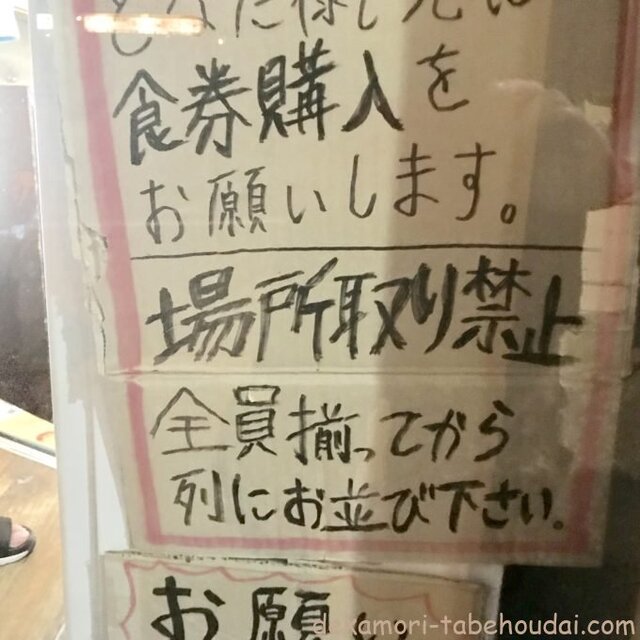 食券購入を
お願いします。
場所取り禁止
全員揃ってから
列にお並び下さい。
お願い
dekamori-tabehoudai.com